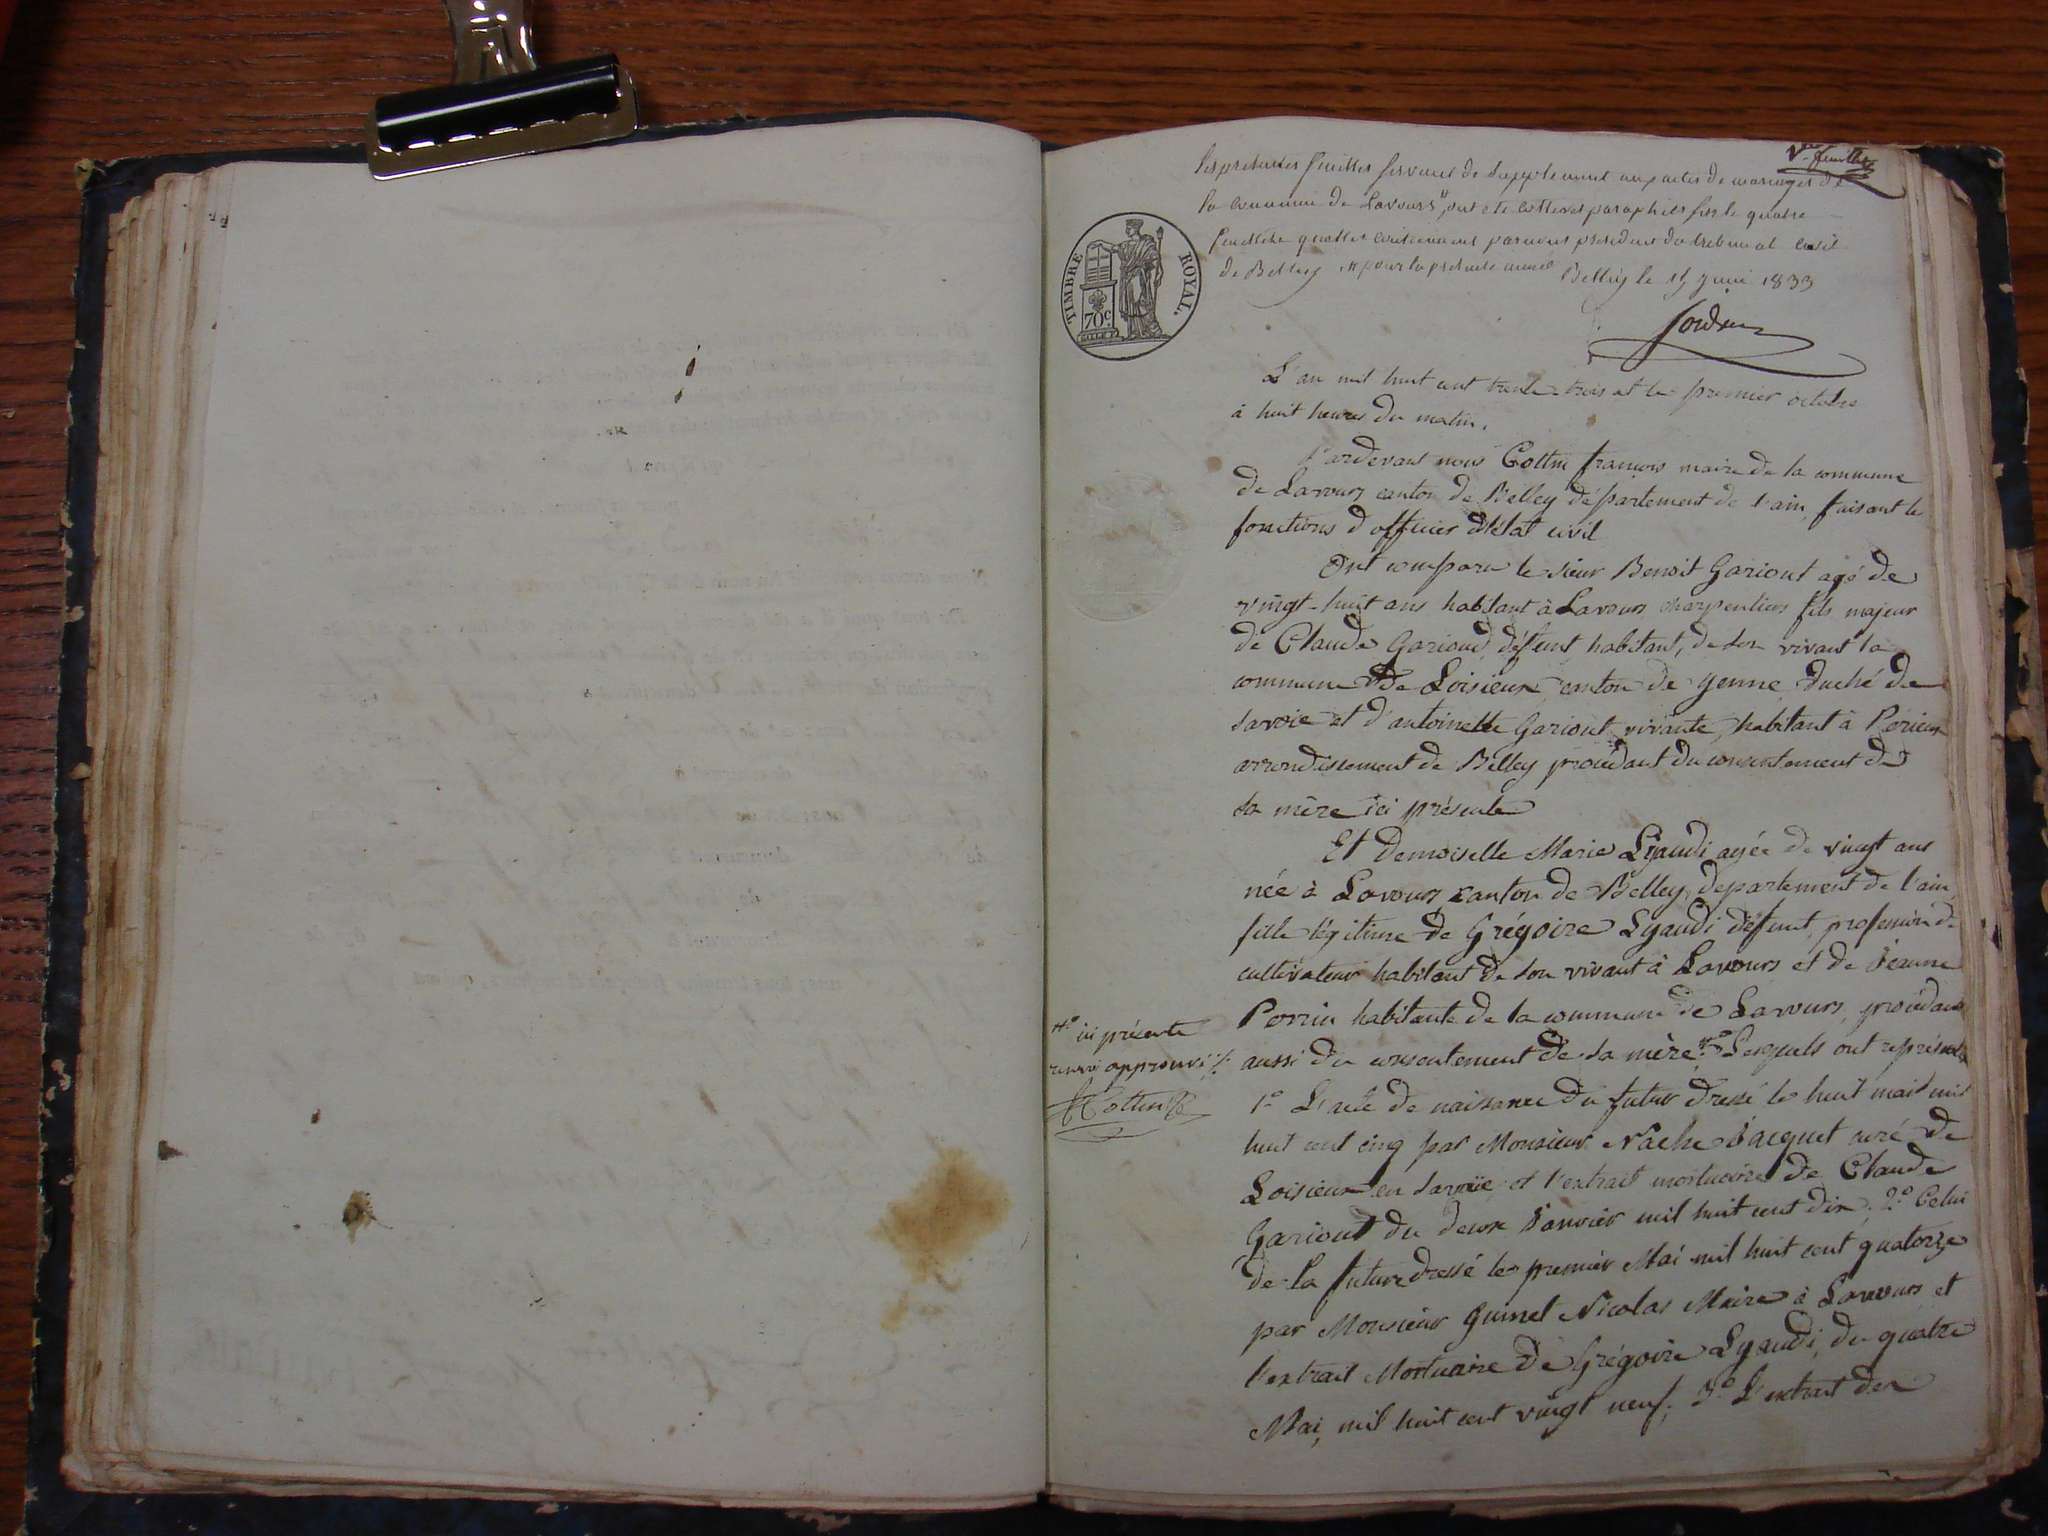 1re feuillet
les présentes feuilles servant de supplement aux actes de mariages de
la commune de Lavours, ont été cottées et paraphées sur le quatre
par nous president du tribunal civil
de Belley # pour la presente année Belley le 15 juin 1833
TIMBRE ROYAL.
70c
L'an mil huit cent trente-trois et le premier octobre
à huit heures du matin,
Pardevant nous Cottin françois maire de la commune
de Lavours canton de Belley département de l'ain, faisant les
fonctions d'officier d'état civil
Ont comparu le sieur Benoit Gariout agé de
vingt-huit ans habitant à Lavours charpentier fils majeur
de Claude Garioud, défunt, habitant, de son vivant la
commune de Loisieux canton de yenne duché de
savoie et d'antoinette Gariout vivante, habitant à
arrondissement de Belley procédant du consentement de
sa mère ici présente
Et Demoiselle Marie Lyaudi agée de vingt ans
née à Lavours canton de Belley, département de l'ain
fille légitime de Grégoire Lyaudi défunt, profession de
cultivateur habitant de son vivant à Lavours et de Jeanne
Perrin habitante de la commune de Lavours, procédant
aussi du consentement de sa mère. #° Lesquels ont représenté
#° ici présente
renvoi approuvé ./.
Cottin
1.° L'acte de naissance du futur dressé le huit mai mil
huit cent cinq par Monsieur Vache Jacquet curé de
Loisieux en savoie et l'extrait mortuaire de Claude
Gariout du deux Janvier mil huit cent dix, 2.° Celui
de la future dressé le premier Mai mil huit cent quatorze
par Monsieur Guinet Nicolas Maire à Lavours et
l'extrait Mortuaire de Grégoire Lyaudi, du quatre
Mai, mil huit cent vingt neuf, 3.° L'extrait des